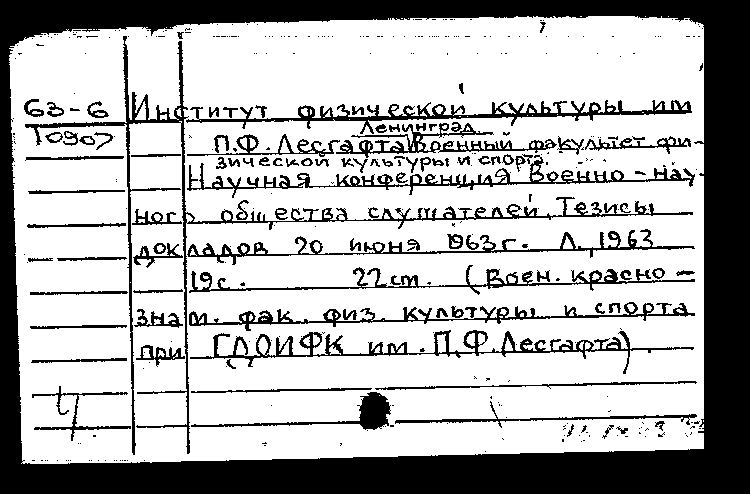 63-6 Институт физической культуры им
Т0907
Ленинград
П.Ф. Лесгафта Военный факультет фи-
зической культуры и спорта.
Научная конференция Военно-науч-
ного общества слушателей. Тезисы
докладов 20 июня 1963 г. Л., 1963
19с. 22 cm. (Воен. красно-
знам. фак. физ. культуры и спорта
при ГДОИФК им. П.Ф. Лесгафта).